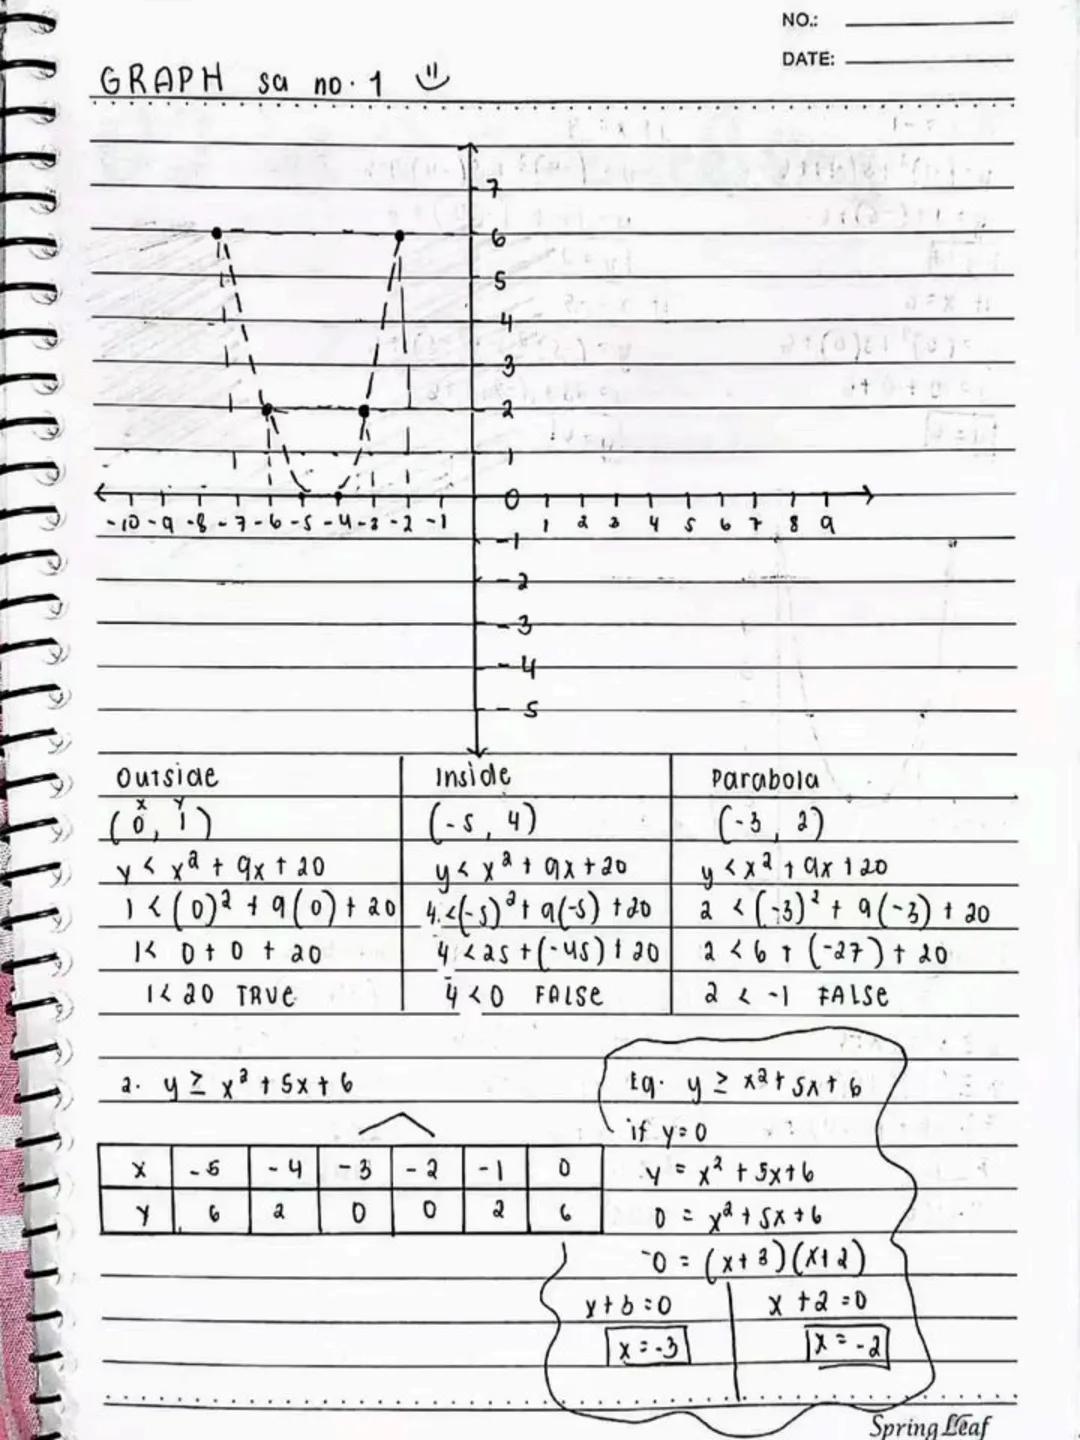 NO.:
DATE:
GRAPH sa no. 1
7
6
5
4
3
2
1
-10 -9 -8 -7 -6 -5 -4 -3 -2 -1 0 1 2 3 4 5 6 7 8 9
-1
-2
-3
-4
-5
Outside Inside Parabola
x y
(0, 1) (-5, 4) (-3, 2)
y < x² + 9x + 20 y < x² + 9x + 20 y < x² + 9x + 20
1 < (0)² + 9(0) + 20 4 < (-5)² + 9(-5) + 20 2 < (-3)² + 9(-3) + 20
1 < 0 + 0 + 20 4 < 25 + (-45) + 20 2 < 6 + (-27) + 20
1 < 20 TRUE 4 < 0 FALSE 2 < -1 FALSE
2. y ≥ x² + 5x + 6 Eq. y ≥ x² + 5x + 6
if y = 0
x -5 -4 -3 -2 -1 0 y = x² + 5x + 6
y 6 2 0 0 2 6 0 = x² + 5x + 6
0 = (x + 3)(x + 2)
x + 3 = 0 x + 2 = 0
x = -3 x = -2
Spring Leaf